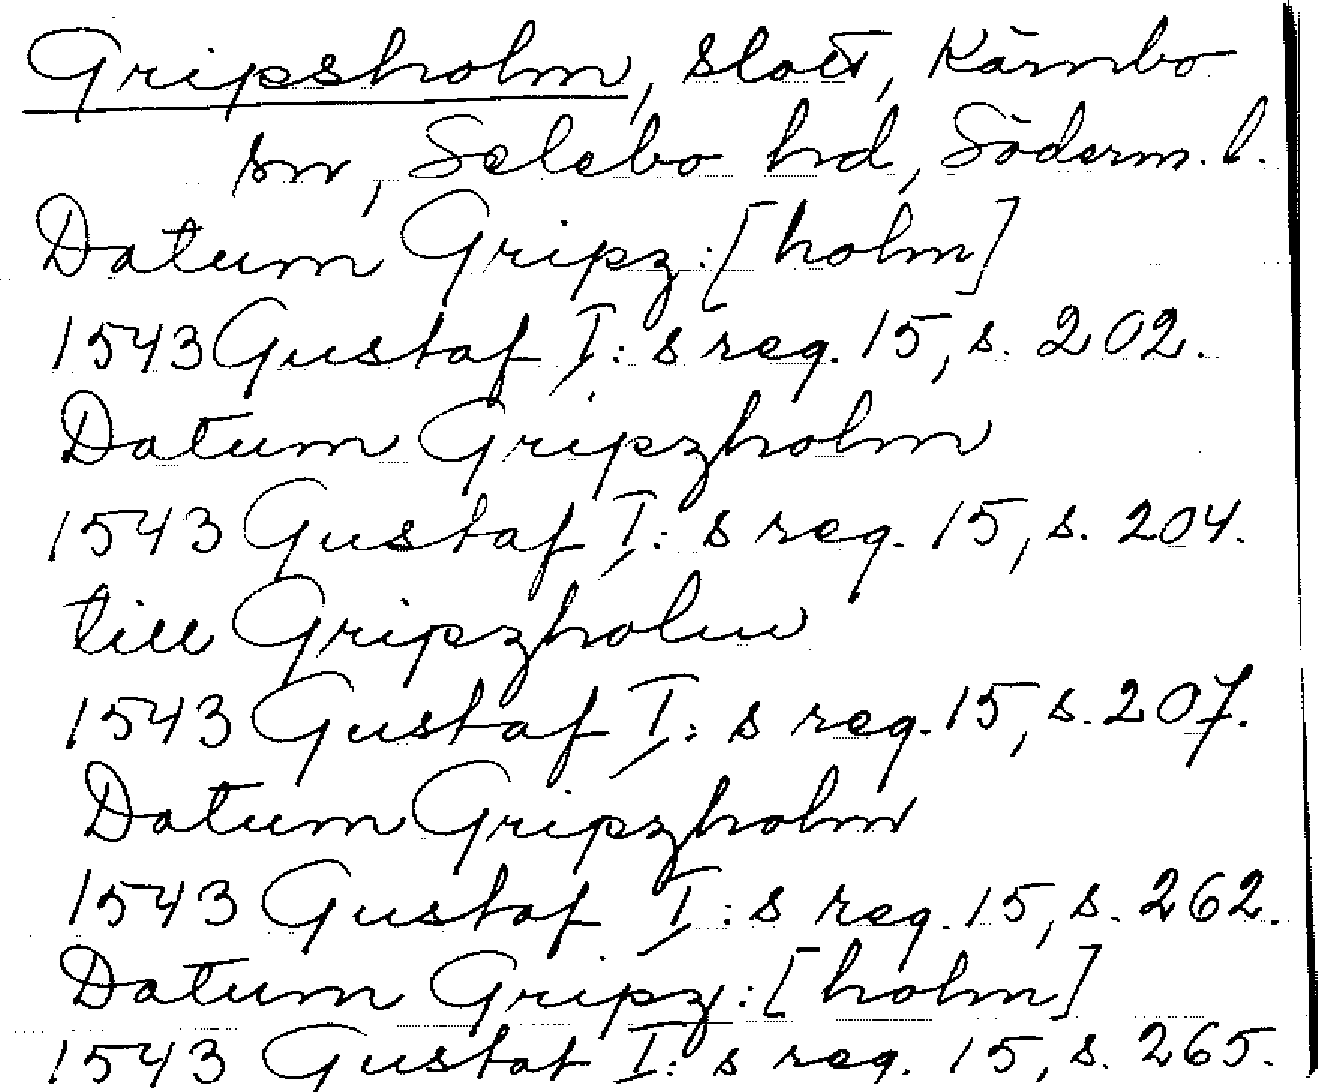 Gripsholm, slott, Kärnbo
sn, Selebo hd, Söderm. l.
Datum Gripz:[holm]
1543 Gustaf I:s reg. 15, s. 202.
Datum Gripzholm
1543 Gustaf I:s reg. 15, s. 204.
till Gripzholm
1543 Gustaf I:s reg. 15, s. 207.
Datum Gripzholm
1543 Gustaf I:s reg. 15, s. 262.
Datum Gripz:[holm]
1543 Gustaf I:s reg. 15, s. 265.